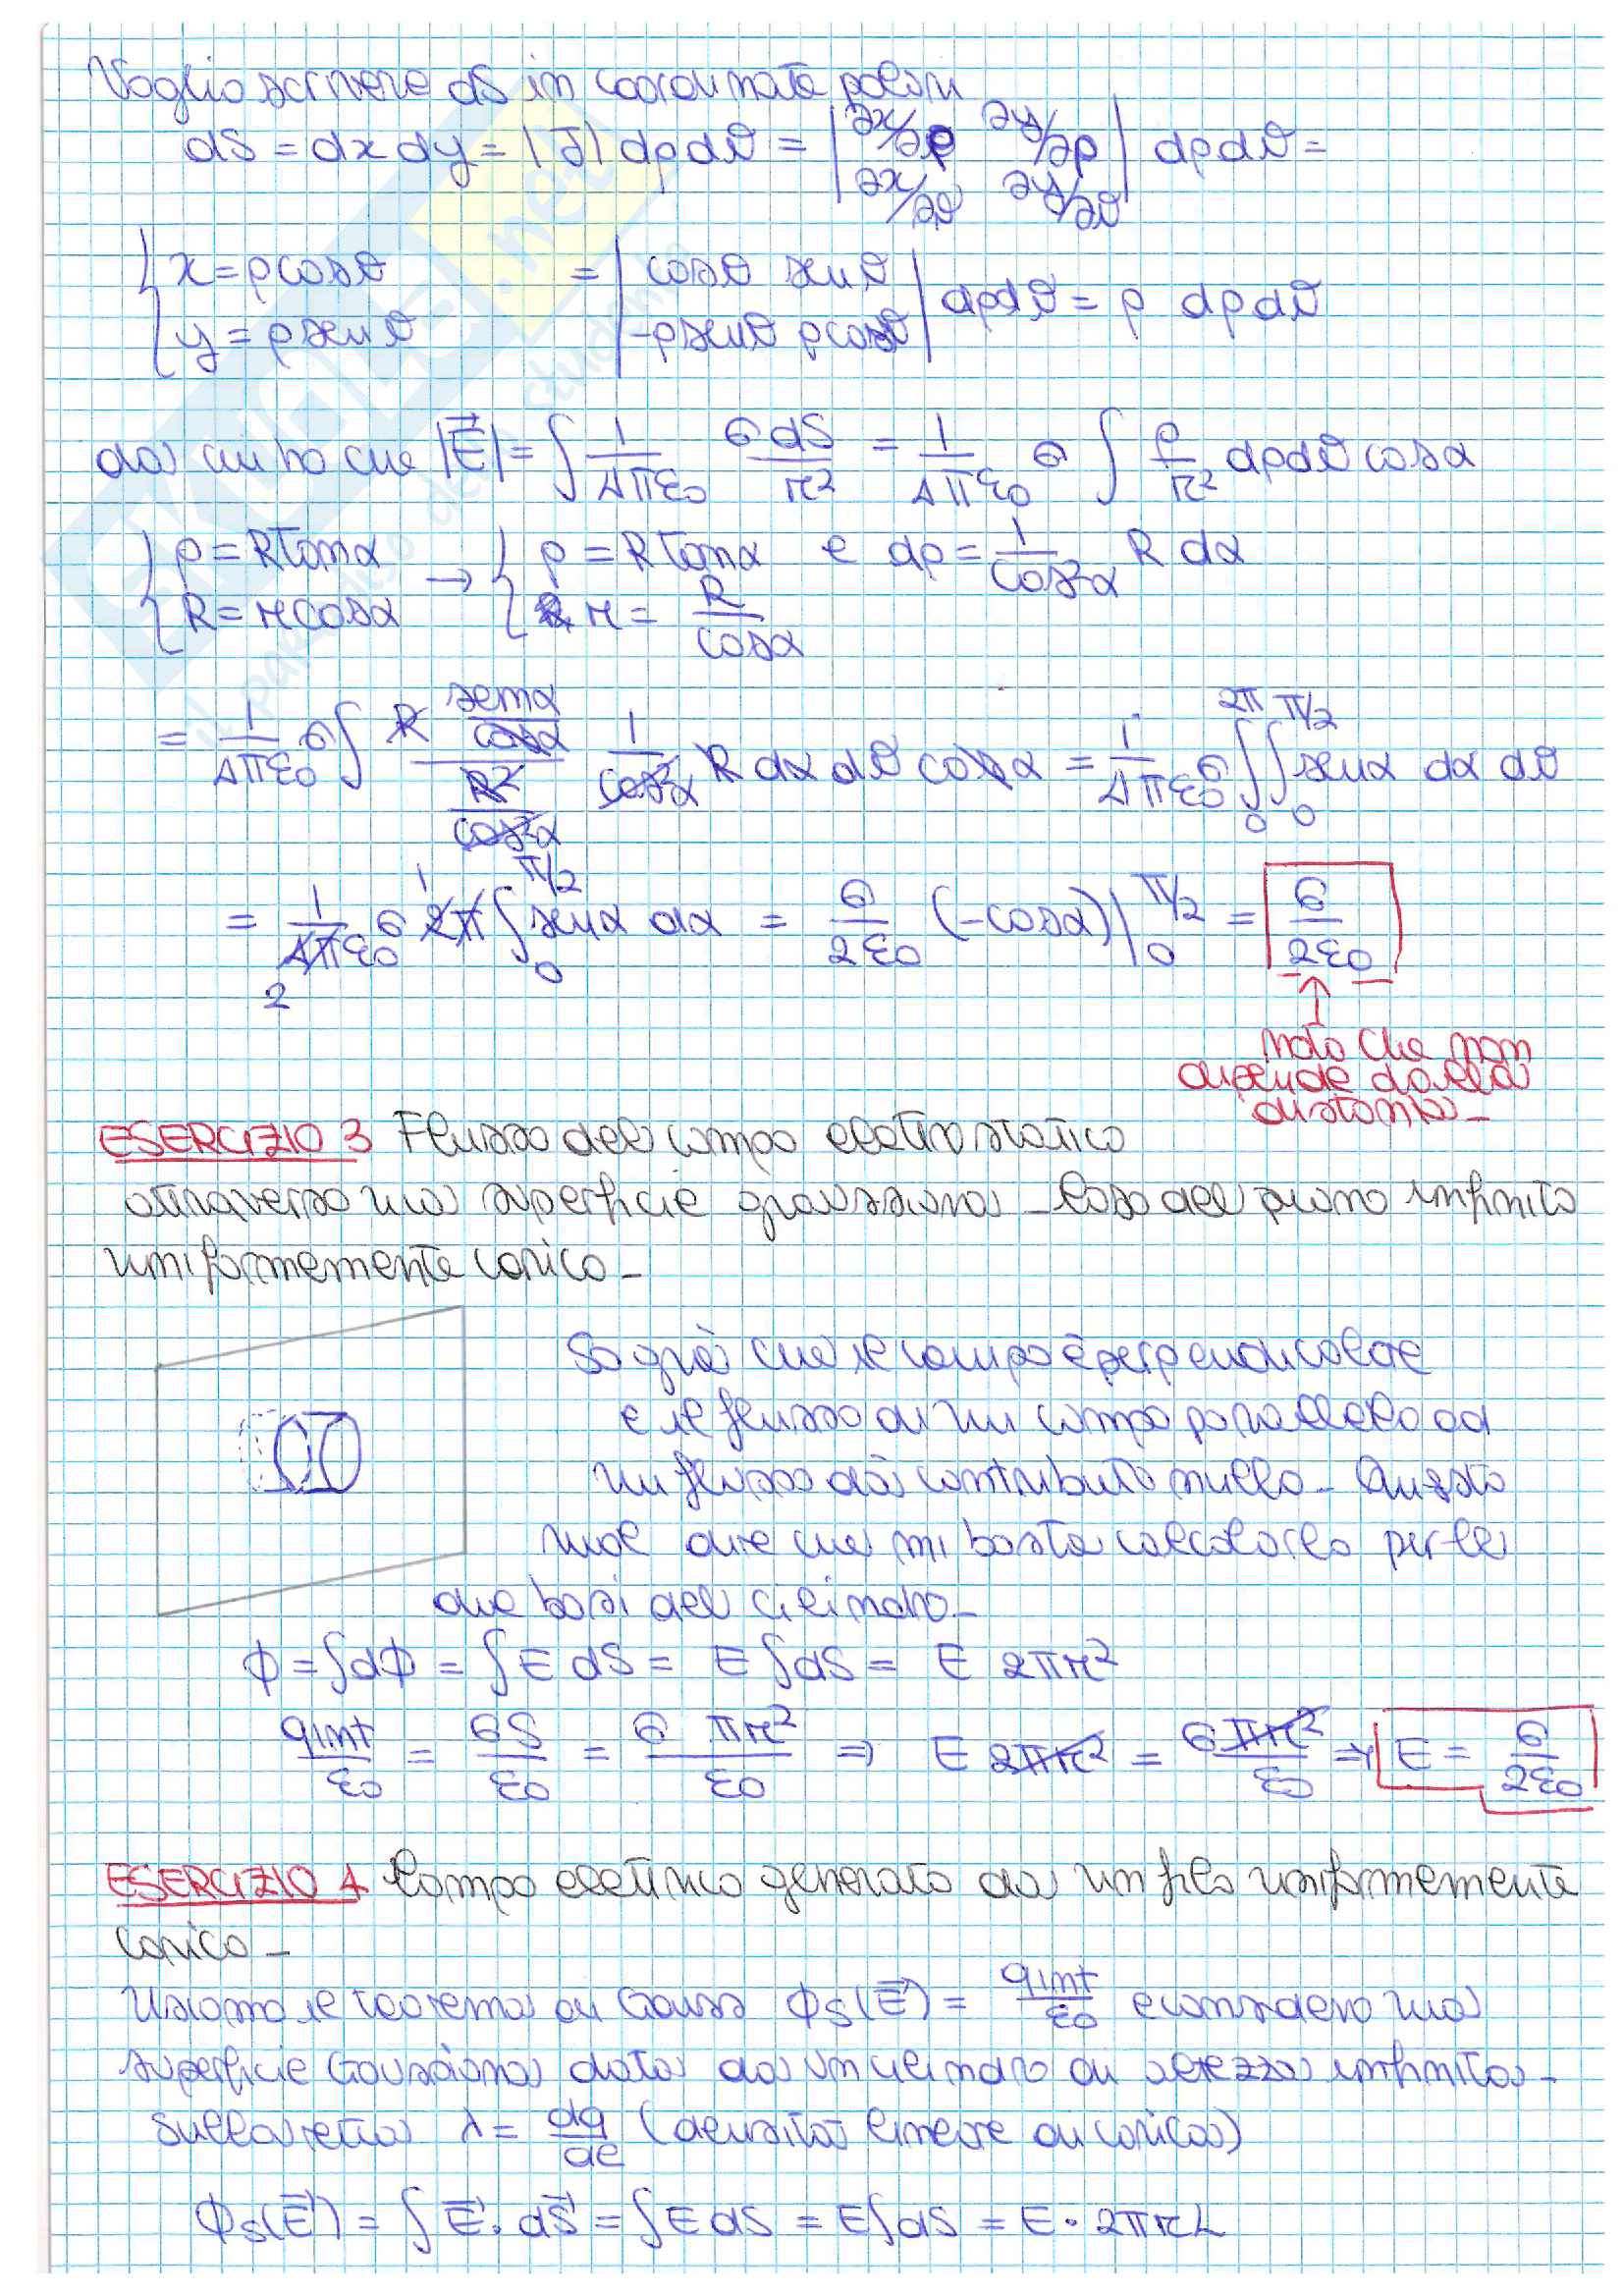 Voglio scrivere dS in coordinate polari
dS = dx dy = |J| dρdθ = | ∂x/∂ρ ∂y/∂ρ ; ∂x/∂θ ∂y/∂θ | dρdθ =
{ x = ρcosθ ; y = ρsenθ = | cosθ senθ ; -ρsenθ ρcosθ | dρdθ = ρ dρdθ
da cui ho che |E⃗| = ∫ 1/4πε₀ σdS/r² = 1/4πε₀ σ ∫ ρ/r² dρdθ cosα
{ ρ = Rtanα ; R = rcosα → { ρ = Rtanα e dρ = 1/cos²α R dα ; r = R/cosα
= 1/4πε₀ σ ∫ R senα/cosα / R²/cos²α 1/cos²α R dα dθ cosα = 1/4πε₀ σ ∫₀^2π ∫₀^π/2 senα dα dθ
= 1/4πε₀ σ 2π ∫₀^π/2 senα dα = σ/2ε₀ (-cosα)|₀^π/2 = σ/2ε₀
noto che non
dipende dalla
distanza -
ESERCIZIO 3 Flusso del campo elettrostatico
attraverso una superficie gaussiana - Caso del piano infinito
uniformemente carico -
So già che il campo è perpendicolare
e il flusso di un campo parallelo ad
un flusso dà contributo nullo - Questo
vuol dire che mi basta calcolarlo per le
due basi del cilindro -
ϕ = ∫dϕ = ∫E dS = E ∫dS = E 2πr²
qint/ε₀ = σS/ε₀ = σ πr²/ε₀ ⇒ E 2πr² = σπr²/ε₀ ⇒ E = σ/2ε₀
ESERCIZIO 4 Campo elettrico generato da un filo uniformemente
carico -
Usiamo il teorema di Gauss ϕs(E⃗) = qint/ε₀ e considero una
superficie Gaussiana data da un cilindro di altezza infinita -
Sulla retta λ = dq/dl (densità lineare di carica)
ϕs(E⃗) = ∫ E⃗ · dS⃗ = ∫E dS = E∫dS = E · 2πrL